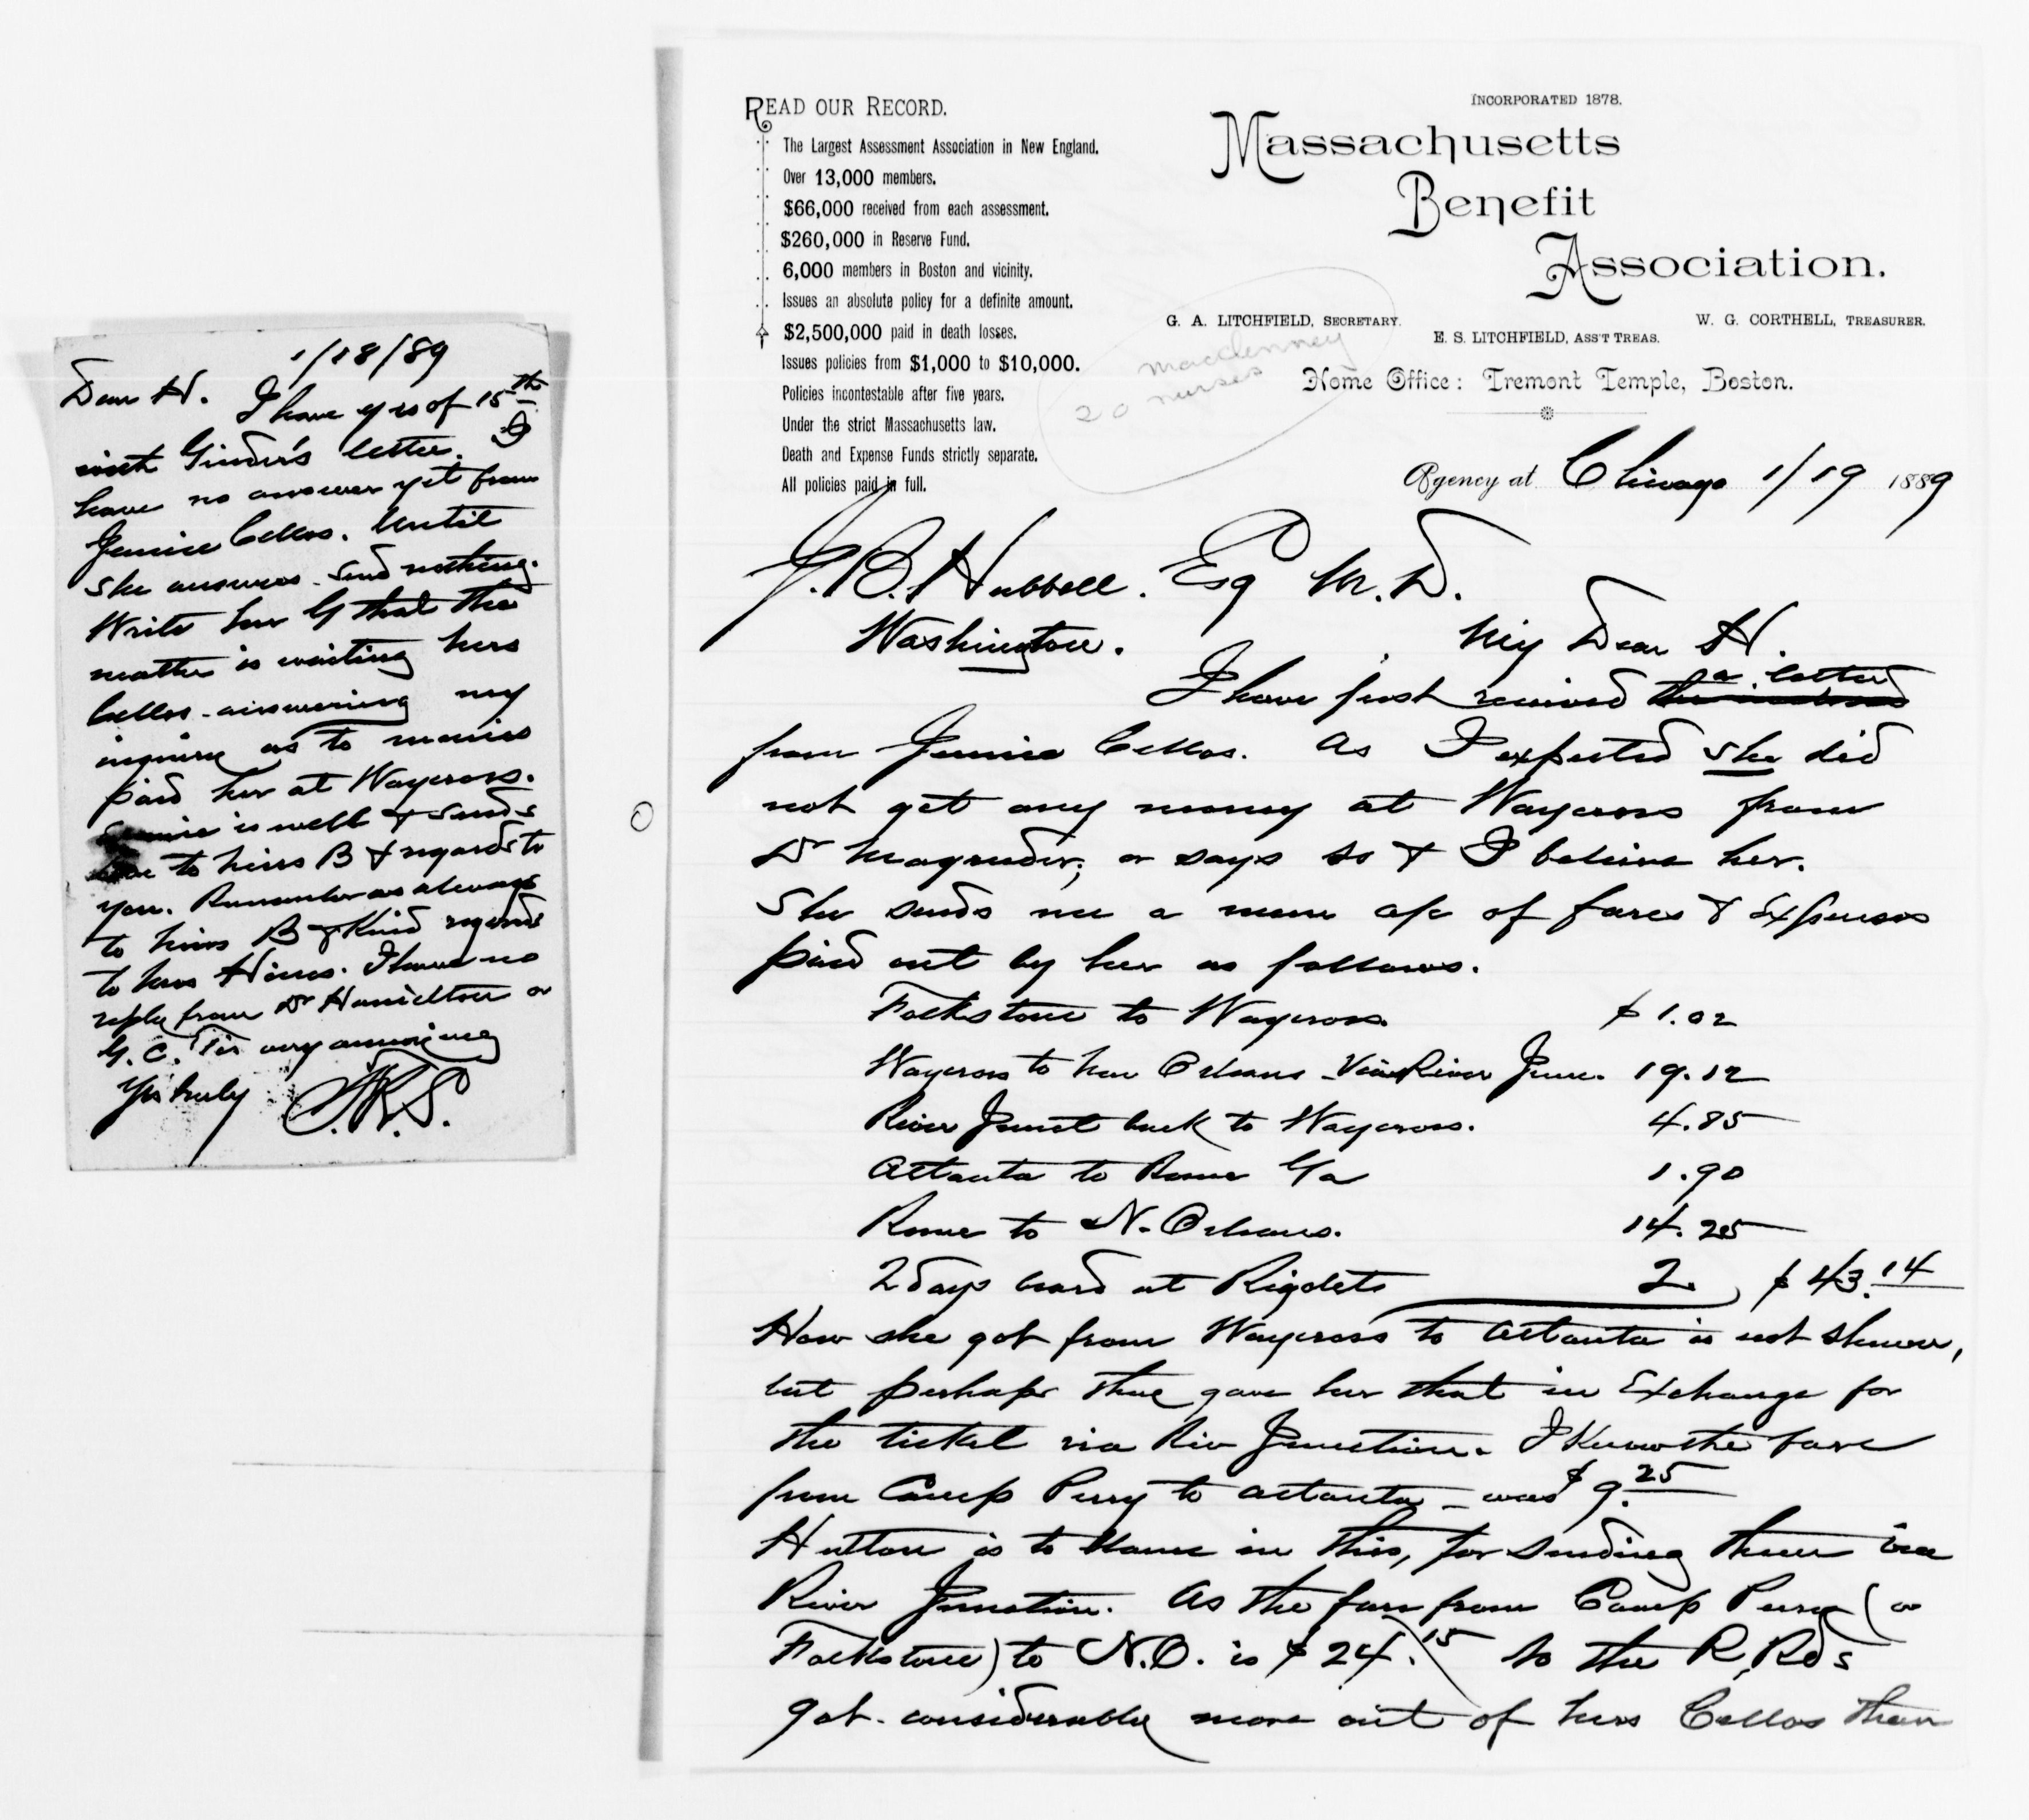 1/18/89
Dear H. I have yrs of 15th
with Ginder's letter. I
have no answer yet from
Jennie Cellos. Until
she answers send nothing.
Write her G that the
matter is waiting Mrs
Cellos answering my
inquiry as to monies
paid her at Waycross.
is well & sends
love to Miss B & regards to
you. Remember as always
to Miss B & Kind regards
to Mrs Hines. I have no
reply from Dr Hamilton or
G. C. Tis very annoying
Yrs truly F.R.S.
READ OUR RECORD.
The Largest Assessment Association in New England.
Over 13,000 members.
$66,000 received from each assessment.
$260,000 in Reserve Fund.
6,000 members in Boston and vicinity.
Issues an absolute policy for a definite amount.
$2,500,000 paid in death losses.
Issues policies from $1,000 to $10,000.
Policies incontestable after five years.
Under the strict Massachusetts law.
Death and Expense Funds strictly separate.
All policies paid in full.
INCORPORATED 1878.
Massachusetts
Benefit
Association.
G. A. LITCHFIELD, SECRETARY.
W. G. CORTHELL, TREASURER.
E. S. LITCHFIELD, ASS'T TREAS.
Home Office: Tremont Temple, Boston.
macclenney
20 nurses
Agency at Chicago 1/19 1889
J. B. Hubbell. Esq M.D.
Washington. My Dear H.
I have just received a letter
from Jennie Cellos. As I expected she did
not get any money at Waycross from
Dr Magruder; or says so & I believe her.
She sends me a mem a/c of fares & Expenses
paid out by her as follows.
Folkstone to Waycross. $1.02
Waycross to New Orleans - Via River Junc. 19.12
River Junct back to Waycross. 4.85
Atlanta to Rome Ga 1.90
Rome to N. Orleans. 14.25
2 days board at Rigdets 2. $43.14
How she got from Waycross to Atlanta is not shown,
but perhaps they gave her that in Exchange for
the ticket via Riv Junction. I Know the fare
from Camp Perry to Atlanta - was $9.25
Hutton is to blame in this, for sending them via
River Junction. As the fare from Camp Perry (or
Folkstone) to N.O. is $24.15 So the R.Rds
got considerable more out of Mrs Cellos than